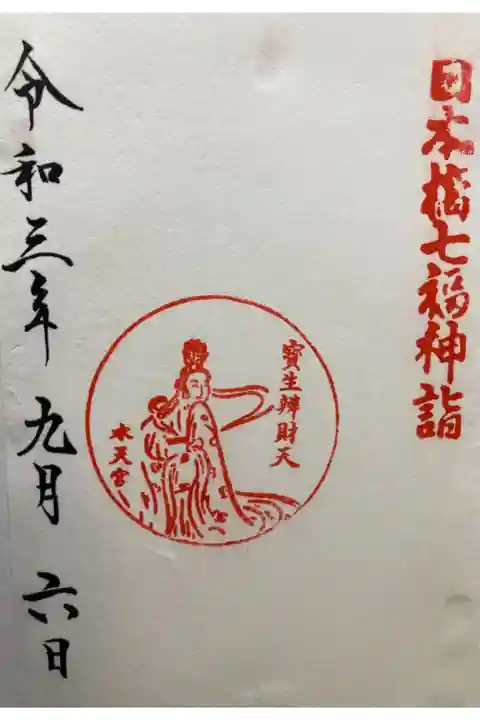 日本橋七福神詣
寳生辨財天
水天宮
令和三年 九月 六日